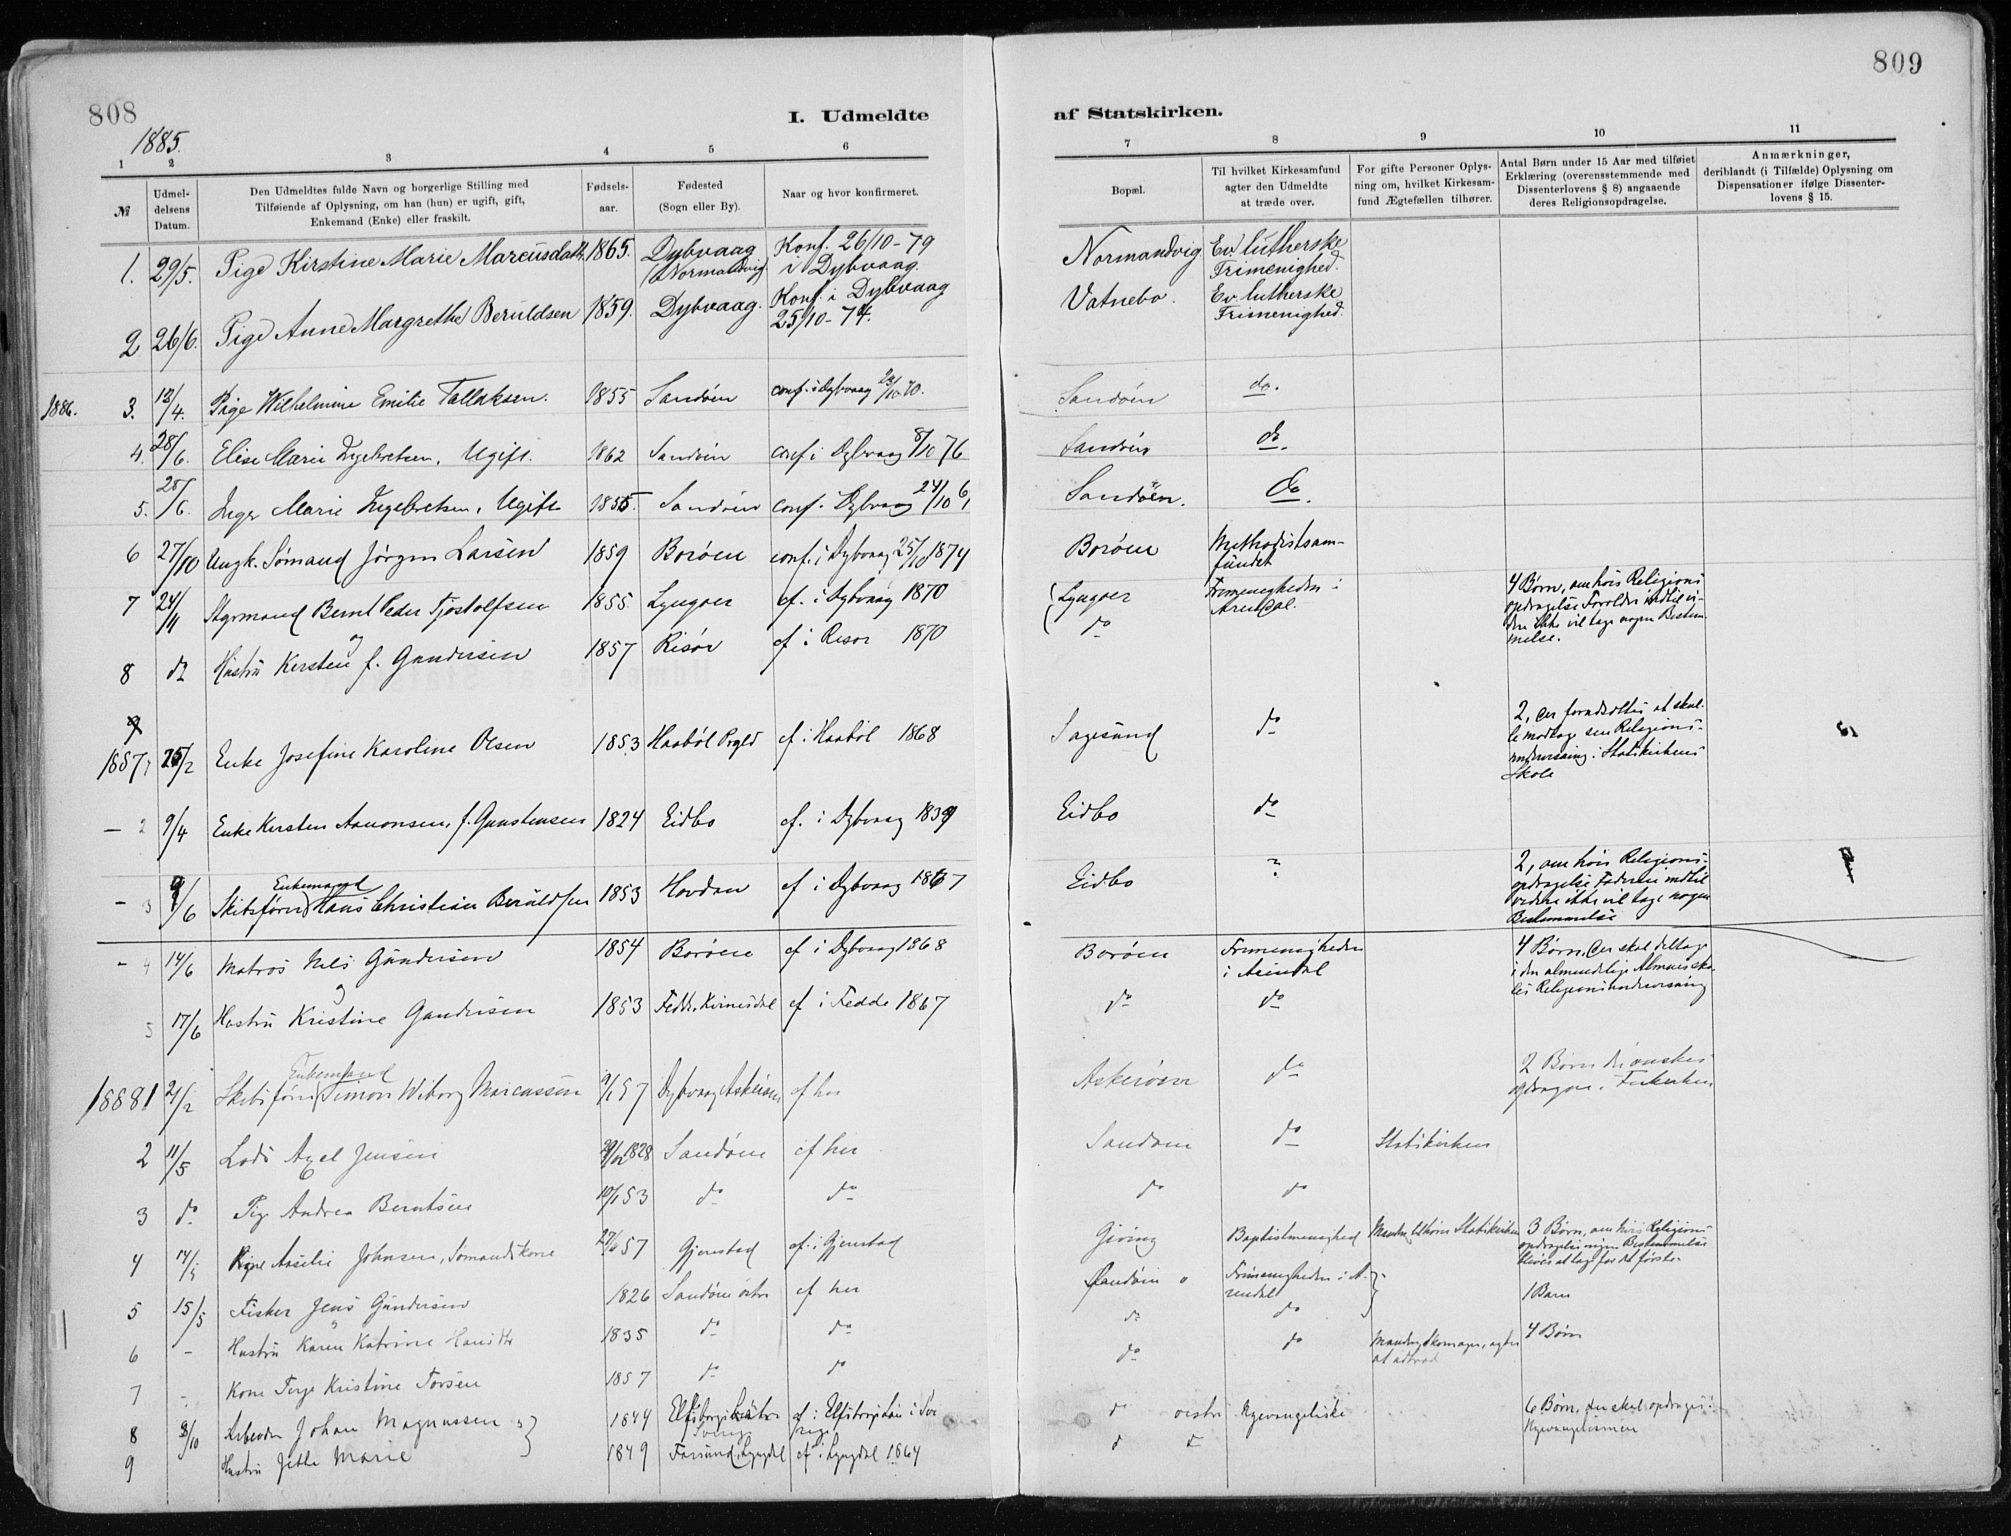 808
809
1885.
I. Udmeldte
af Statskirken.
1 2 3 4 5 6 7 8 9 10 11
№
Udmel-
delsens
Datum.
Den Udmeldtes fulde Navn og borgerlige Stilling med
Tilføiende af Oplysning, om han (hun) er ugift, gift,
Enkemand (Enke) eller fraskilt.
Fødsels-
aar.
Fødested
(Sogn eller By).
Naar og hvor konfirmeret.
Bopæl.
Til hvilket Kirkesamfund
agter den Udmeldte
at træde over.
For gifte Personer Oplys-
ning om, hvilket Kirkesam-
fund Ægtefællen tilhører.
Antal Børn under 15 Aar med tilføiet
Erklæring (overensstemmende med
Dissenterlovens § 8) angaaende
deres Religionsopdragelse.
Anmærkninger,
deriblandt (i Tilfælde) Oplysning om
Dispensationer ifølge Dissenter-
lovens § 15.
1. 29/5. Pige Kirstine Marie Marcusdatt. 1865. Dybvaag (Normandvig) Konf. 26/10-79 i Dybvaag. Normandvig Ev. lutherske Frimenighed.
2 26/6. Pige Anne Margrethe Beruldsen 1859. Dybvaag. Konf. i Dybvaag 25/10-74. Vatnebo. Ev. lutherske Frimenighed.
1886. 3. 13/4. Pige Wilhelmine Emilie Tallaksen. 1855 Sandøen conf. i Dybvaag 23/10 70. Sandøen do.
4. 28/6. Elise Marie Ingebretsen, Ugift. 1862 Sandøen conf i Dybvaag 8/10 76 Sandøen do.
5. 28/6. Inger Marie Ingebretsen, Ugift 1855. Sandøen conf. i Dybvaag 24/10 69 Sandøen. do
6 27/10 Ungk. Sømand Jørgen Larsen 1859 Borøen conf. i Dybvaag 25/10 1874 Borøen Methodistsam-
fundet
7 24/11 Styrmand Bernt Eder Tjøstolfsen 1855. Lyngøer cf. i Dybvaag 1870 Lyngøer Frimenigheden i
Arendal. 4 Børn, om hvis Religions
opdragelse Forældre indtil vi-
dere ikke vil tage nogen Bestem-
melse.
og
8 do Hustru Kersten f. Gundersen 1857 Risør cf i Risør 1870 do
9
1887 1 25/2 Enke Josefine Karoline Olsen 1853 Haabøl Prgld cf. i Haabøl 1868 Sagesund do 2, der forudsættes at skul-
le modtage sin Religions-
undervisning i Statskirkens
Skole
— 2 9/4 Enke Kersten Aanonsen, f. Gunstensen 1824 Eidbo cf. i Dybvaag 1839 Eidbo do
- 3 9/6 Skibsfører Enkemand Hans Christian Beruldsen 1853 Hovdan cf i Dybvaag 1867 Eidbo ? 2, om hvis Religions-
opdragelse Faderen indtil
videre ikke vil tage nogen
Bestemmelse
- 4 14/6 Matros Nils Gundersen 1854 Borøen cf i Dybvaag 1868 Borøen Frimenigheden
i Arendal 4 Børn, der skal deltage
i den almindelige Almuesko-
les Religionsundervisning
og
5 17/6 Hustru Kristine Gundersen 1853 Fedde, Kvinesdal cf i Fedde 1867 do do
1888 1 21/2 Skibsfører Enkemand Simon Wiborg Marcussen 9/1 57 Dybvaag Askerøen cf her Askerøen do 2 Børn
opdragne i Frikirken
2 11/5 Lods Axel Jensen 29/12 1828 Sandøen cf her Sandøen do Statskirken
3 do Pige Andrea Berntsen 10/1 53 do do do do
4 14/5 Amelie Johnsen, Sømandskone 27/6 57 Gjerstad cf. i Gjerstad Giving Baptistmenighed Manden tilhører Statskirken 3 Børn, om hvis Religions
opdragelse ingen Bestemmelse
bliver at tage for det første
5 15/5 Fisker Jens Gundersen 1826 Sandøen østre cf her Sandøen ø Frimenigheden i A-
rendal 1 Barn
og
6 - Hustru Karen Katrine Hansdtr 1835 do do do do 4 Børn
7 - Kone Terje Kristine Torsen 1857 do do do do Manden, Skomager, agter
at udtræde
8 8/10 Arbeider Johan Magnussen og 1844 Elfsborgs
Sverig cf. i Elfsborgs Län i Sve
rige do østre Nyevangeliske 6 Børn, der skal opdrages i
Nyevangelismen
9 Hustru Jette Marie 1849 Farsund, Lyngdal cf i Lyngdal 1864 d d